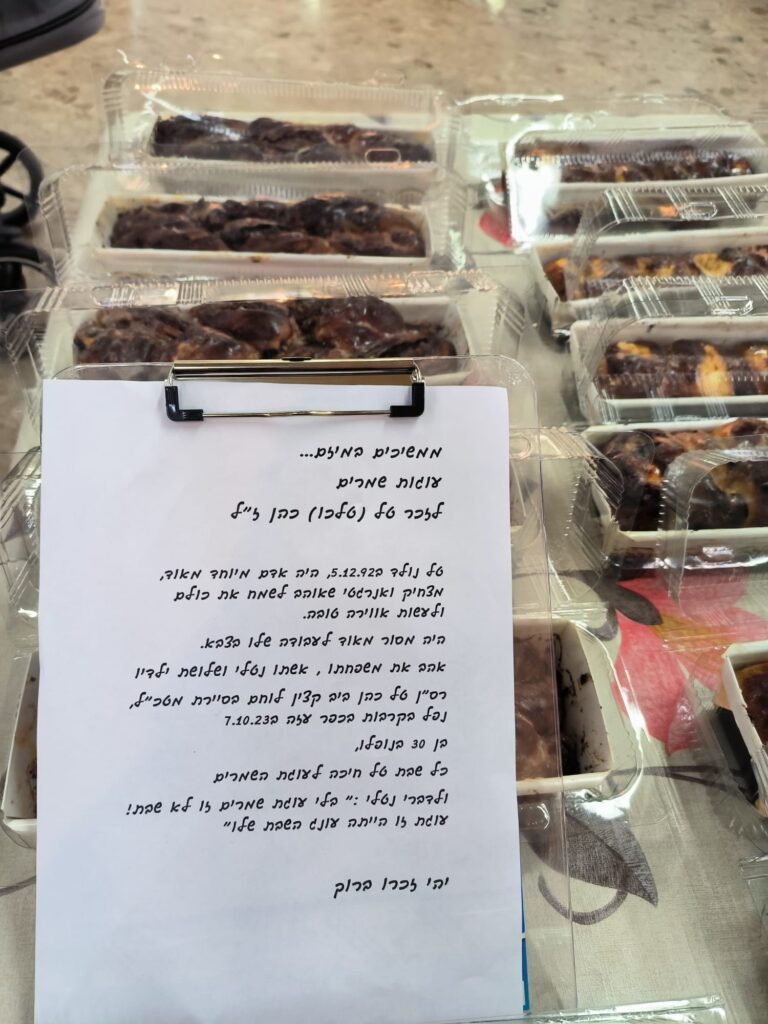 ממשיכים במיזם...
עוגות שמרים
לזכר טל (טלכו) כהן ז"ל
טל נולד ב5.12.92, היה אדם מיוחד מאוד,
מצחיק ואנרגטי שאוהב לשמח את כולם
ולעשות אווירה טובה.
היה מסור מאוד לעבודה שלו בצבא.
אהב את משפחתו , אשתו נטלי ושלושת ילדיו
רס"ן טל כהן ביב קצין לוחם בסיירת מטכ"ל,
נפל בקרבות בכפר עזה ב7.10.23
בן 30 בנופלו,
כל שבת טל חיכה לעוגת השמרים
ולדברי נטלי :" בלי עוגת שמרים זו לא שבת!
עוגת זו הייתה עונג השבת שלו"
יהי זכרו ברוך